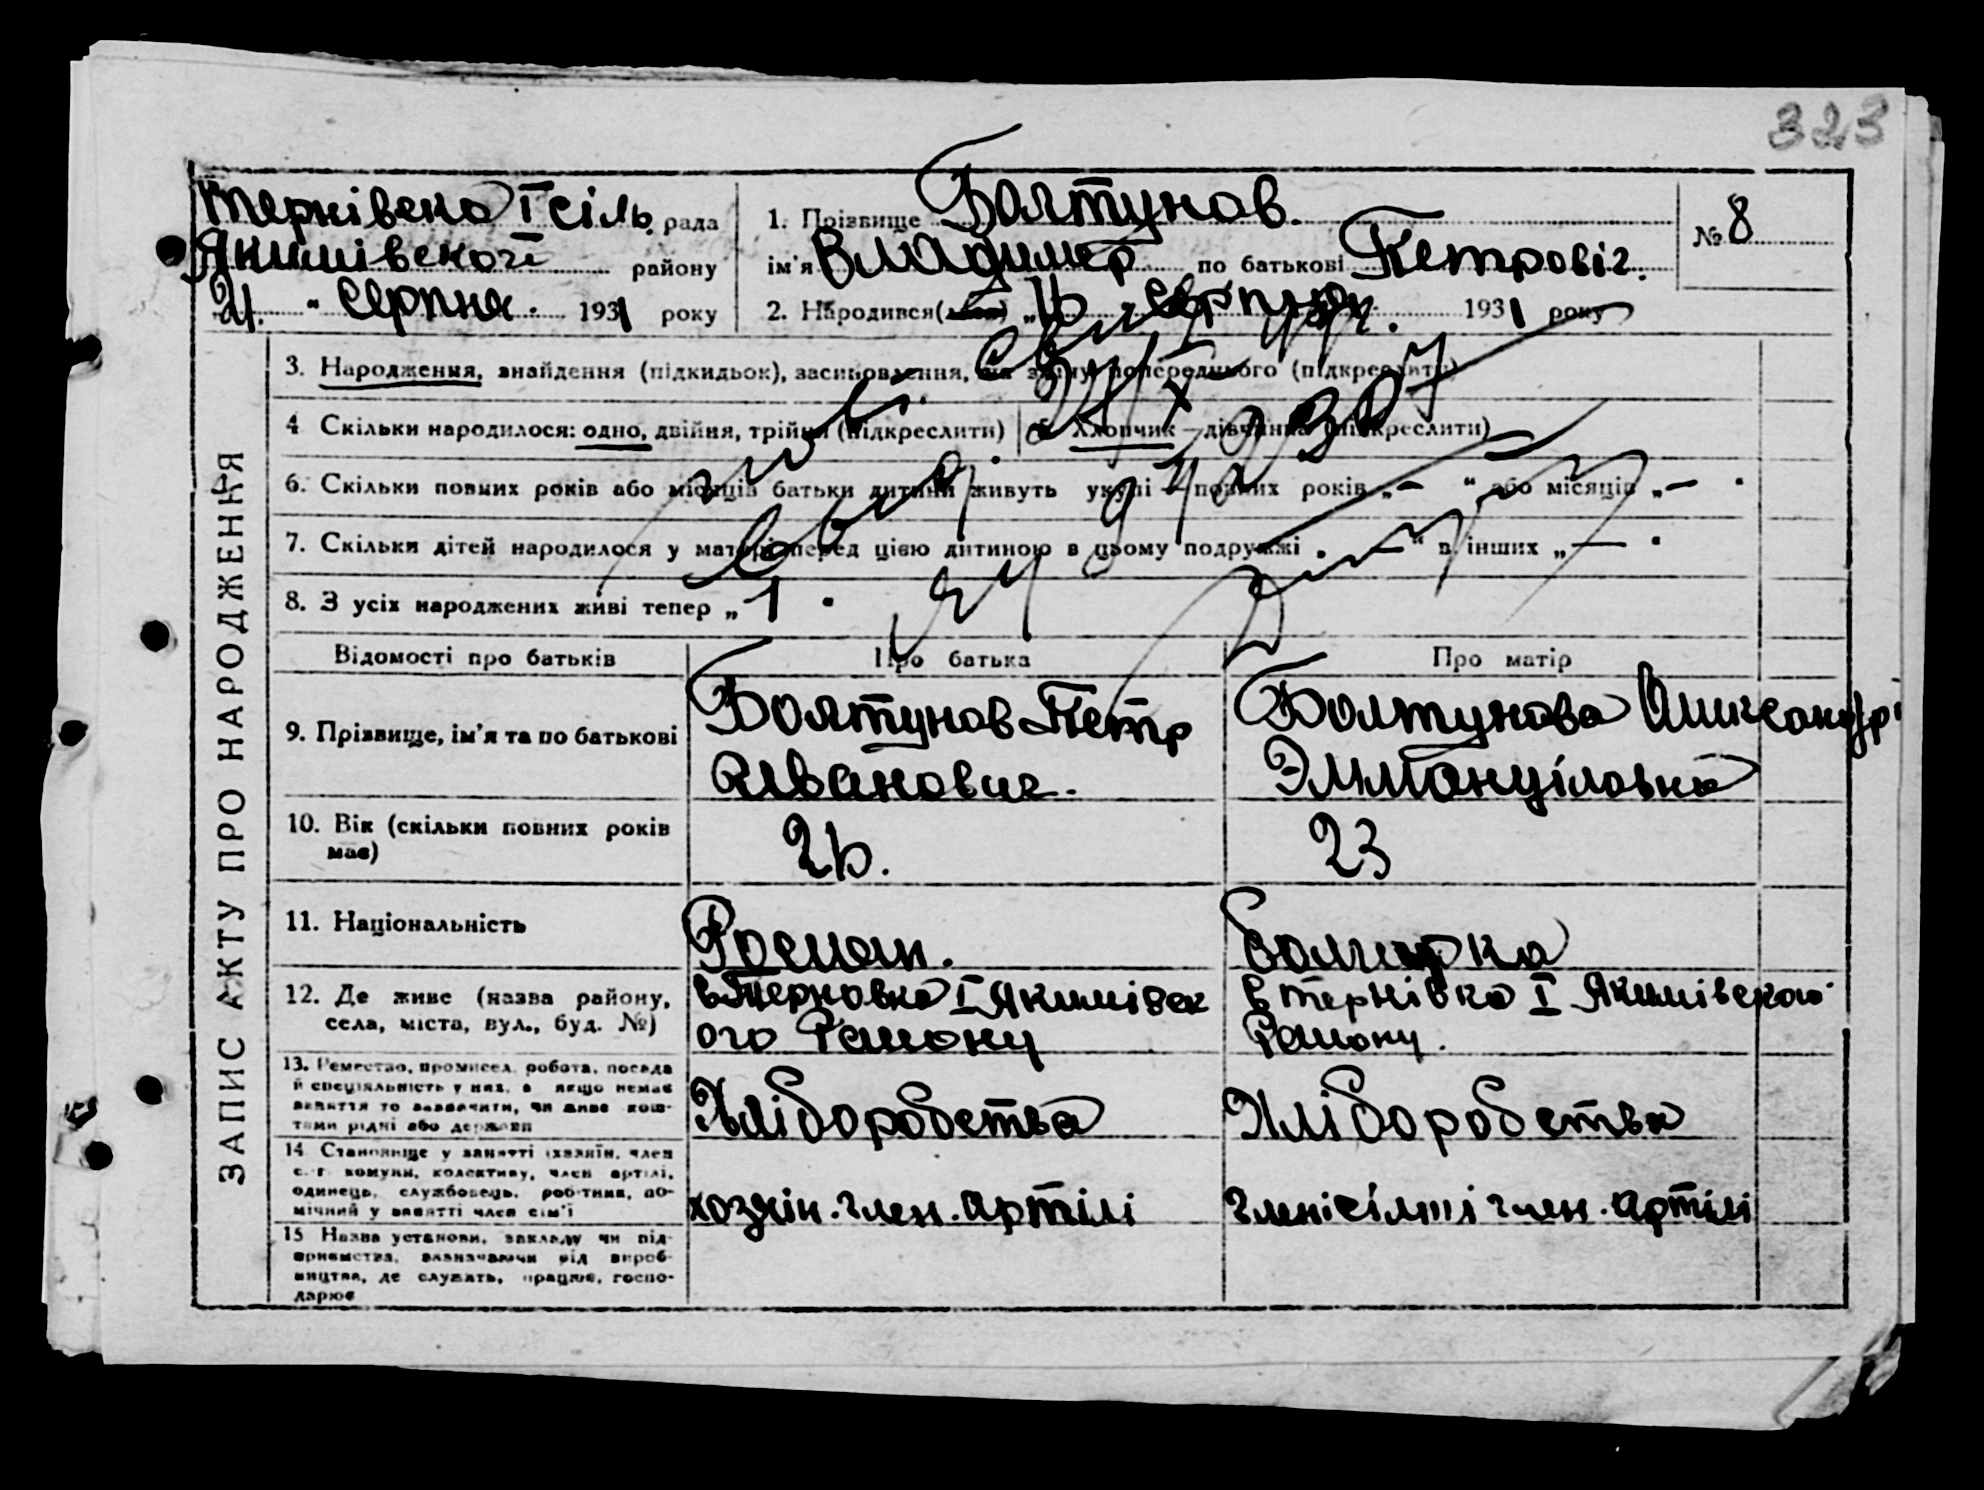 323
Тернівска І сіль. рада
Якимівского району
21. " Серпня. 1931 року
1. Прізвище Болтунов.
ім'я Владимер по батькові Петровіч.
2. Народився(лась) „16 серпня 1931 року
№ 8
ЗАПИС АКТУ ПРО НАРОДЖЕННЯ
3. Народження, знайдення (підкидьок), засиновлення, попереднього (підкреслити)
4 Скільки народилося: одно, двійня, трійня (підкреслити) 5. Хлопчик—дівчинка (підкреслити)
6. Скільки повних років або місяців батьки дитини живуть укупі повних років „— “ або місяців „— "
7. Скільки дітей народилося у матері перед цією дитиною в цьому подружжі „ — “ в інших „ — "
8. З усіх народжених живі тепер „ 1 "
Відомості про батьків Про батька Про матір
9. Прізвище, ім'я та по батькові
Болтунов Петр
Иванович.
Болтунова Александрі
Эммануіловна
10. Вік (скільки повних років
має)
26.
23
11. Національність
Росиян.
Болгарка
12. Де живе (назва району,
села, міста, вул., буд. №)
в Терновка І Якимівск
ого Раиону
в Тернівка І Якимівского
Раиону.
13. Ремество, промисел, робота, посада
й спеціяльність у них, а якщо немає
заняття то зазначити, чи живе кош-
тами рідні або держави
Хліборобства
Хліборобства
14 Становище у занятті (хазяїн, член
с.-г. комуни, колективу, член артілі,
одинець, службовець, робітник, по-
мічний у занятті член сім'ї
хозяін. член. артілі
член. артілі
15 Назва установи, закладу чи під-
приємства, зазначаючи від вироб-
ництва, де служать, працює, госпо-
дарює